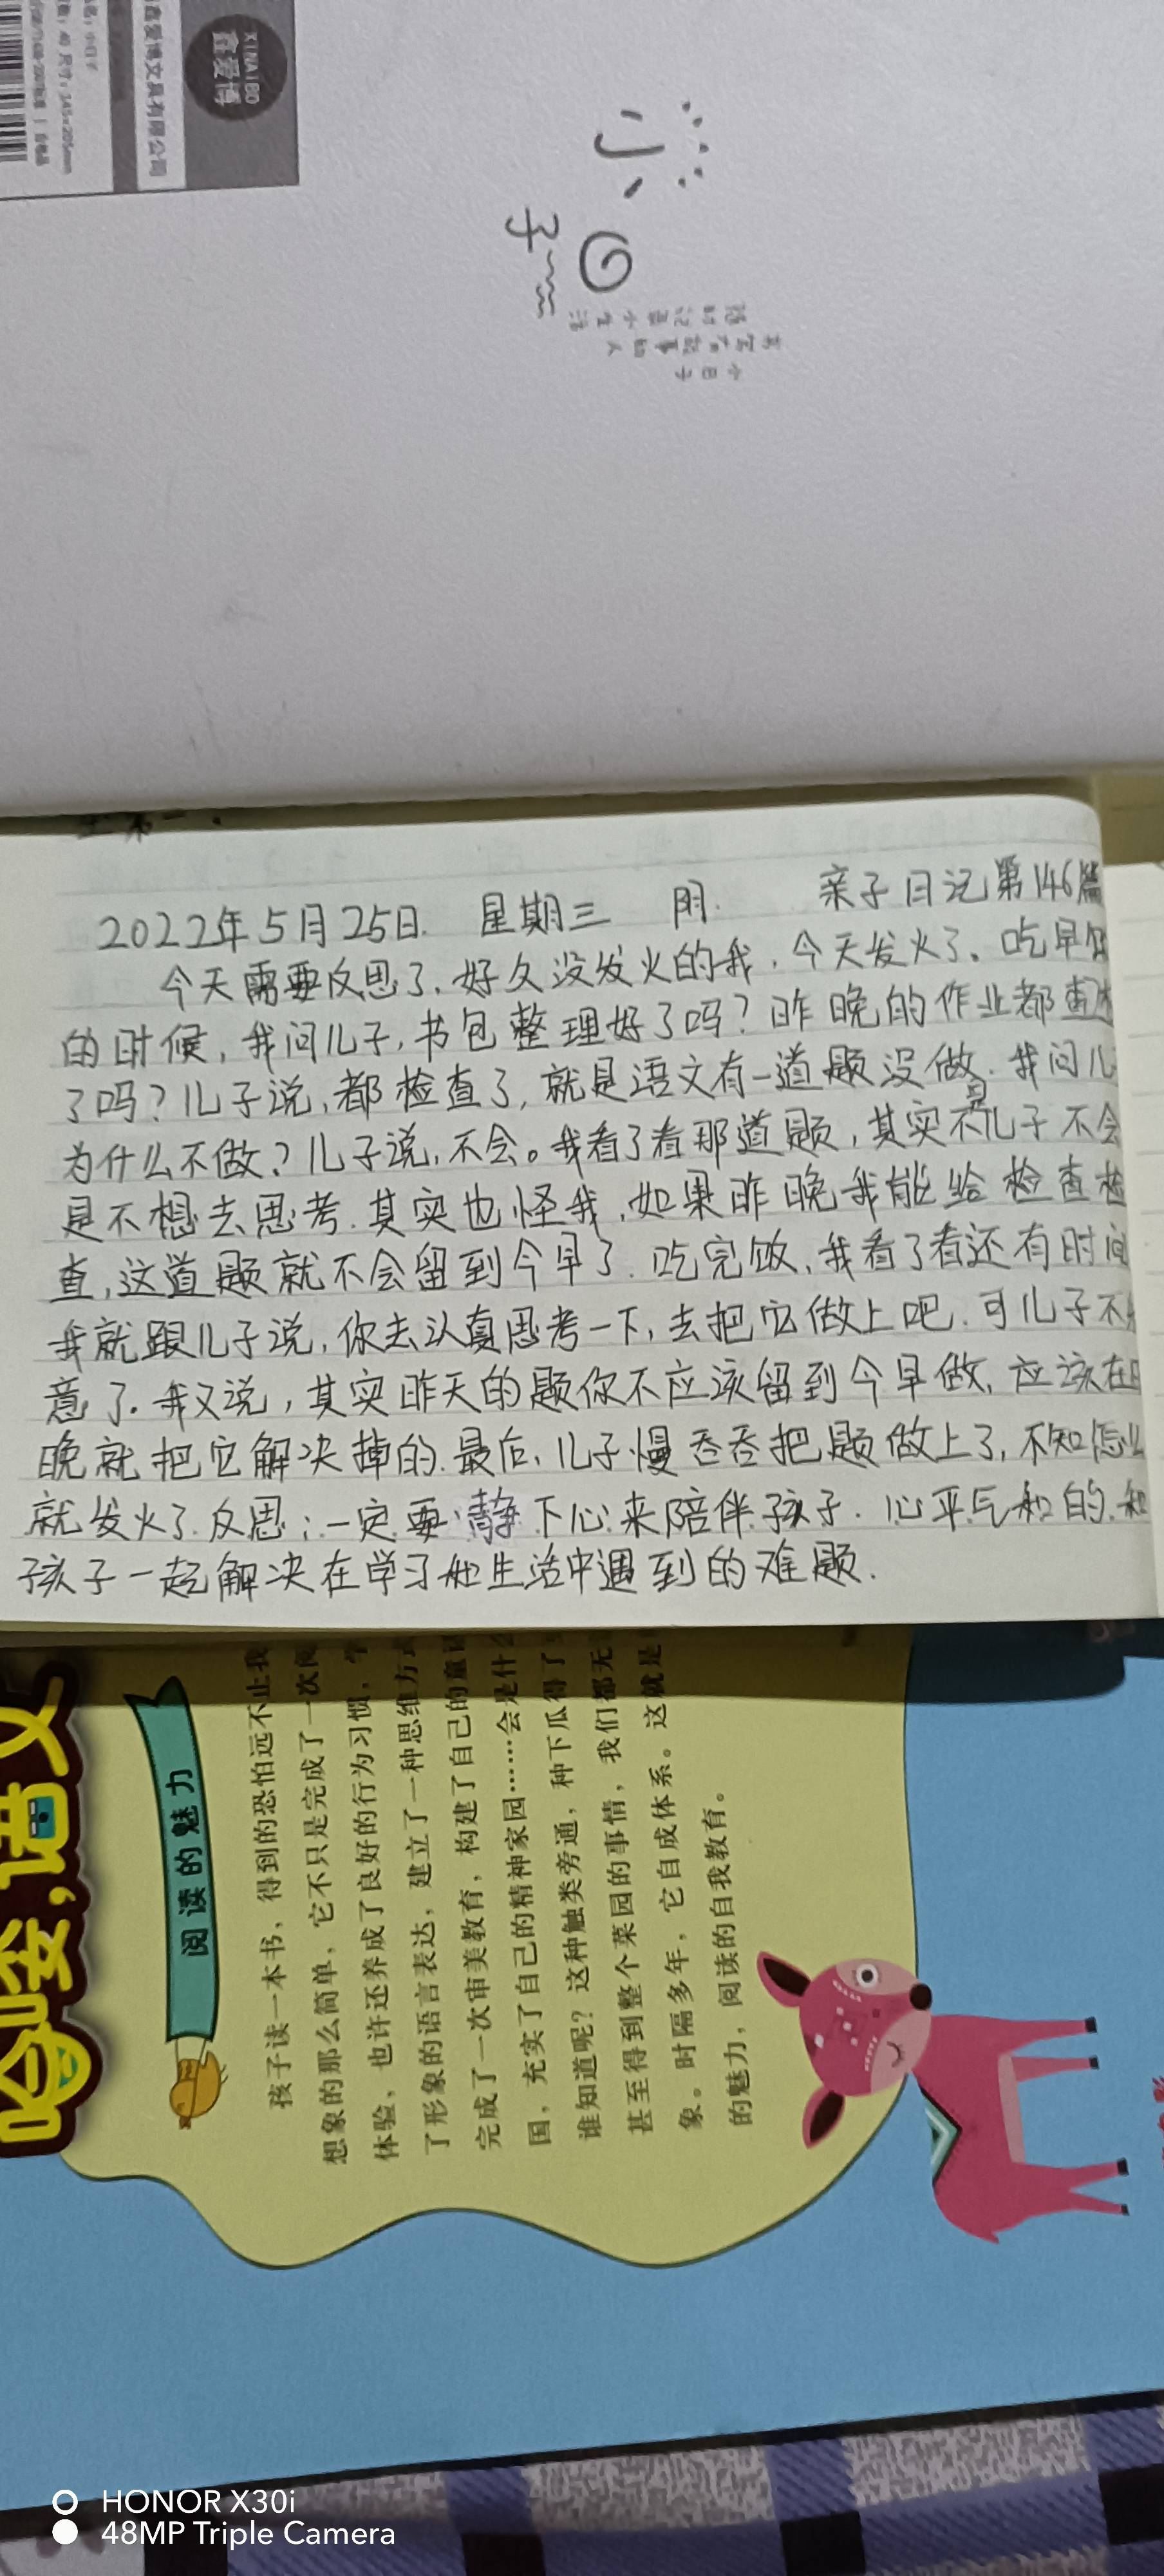 XINAIBO
鑫爱博
爱博文具有限公司
小日子
2022年5月25日. 星期三 阴. 亲子日记第146篇
今天需要反思了.好久没发火的我.今天发火了.吃早饭
的时候,我问儿子,书包整理好了吗?昨晚的作业都查
了吗?儿子说,都检查了,就是语文有一道题没做.我问儿
为什么不做?儿子说,不会。我看了看那道题,其实不是儿子不会
是不想去思考.其实也怪我.如果昨晚我能给检查检
查,这道题就不会留到今早了.吃完饭,我看了看还有时间
我就跟儿子说,你去认真思考一下,去把它做上吧.可儿子不
意了.我又说,其实昨天的题你不应该留到今早做,应该在
晚就把它解决掉的.最后,儿子慢吞吞把题做上了,不知怎么
就发火了.反思:一定要静下心来陪伴孩子.心平气和的.和
孩子一起解决在学习和生活中遇到的难题.
语文
阅读的魅力
孩子读一本书,得到的恐怕远不止我
想象的那么简单,它不只是完成了一次阅
体验,也许还养成了良好的行为习惯,学
了形象的语言表达,建立了一种思维方式
完成了一次审美教育,构建了自己的童话
国,充实了自己的精神家园……会是什么
谁知道呢?这种触类旁通,种下瓜得了
甚至得到整个菜园的事情,我们都无
象。时隔多年,它自成体系。这就是
的魅力,阅读的自我教育。
HONOR X30i
48MP Triple Camera